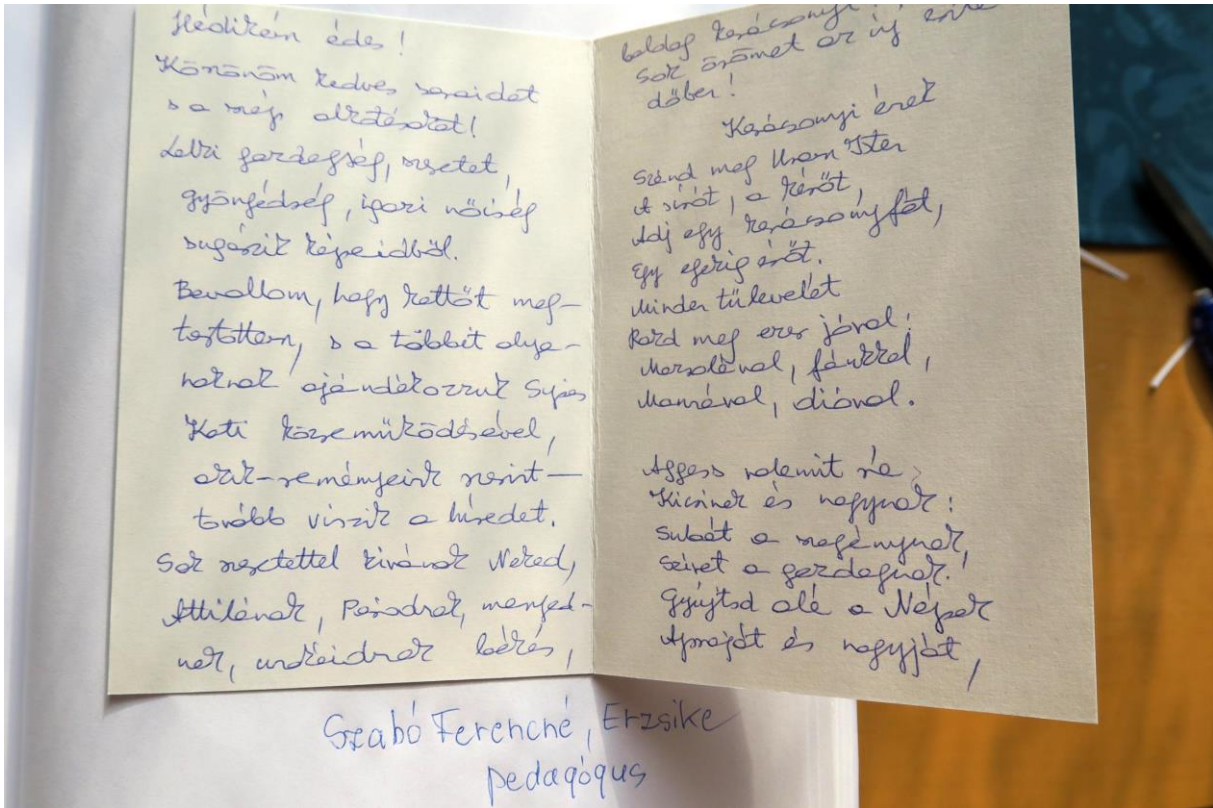 Hédikém édes!
Köszönöm kedves soraidat
s a szép alkotásokat!
Lelki gazdagság, szeretet,
gyöngédség, igazi nőiség
sugárzik képeidből.
Bevallom, hogy kettőt meg-
tartottam, s a többit olya-
noknak ajándékozzuk
Kati közreműködésével,
akik-reményeink szerint-
tovább viszik a híredet.
Sok szeretettel kívánok Neked,
Attilának, Párodnak,
unokáidnak békés,
boldog karácsonyt
Sok örömet az új esz
dőben!
Karácsonyi ének
Szánd meg Uram Isten
A sírót, a kérőt,
Adj egy karácsonyfát,
Egy egekig érőt.
Minden tűlevelét
Rakd meg ezer jóval:
Mazsolával, fánkkal,
Mannával, dióval.
Aggass valamit rá
Kicsinek és nagynak:
Subát a szegénynek,
Szívet a gazdagnak.
Gyújtsd alá a Népek
Apraját és nagyját,
Szabó Ferencné, Erzsike
pedagógus